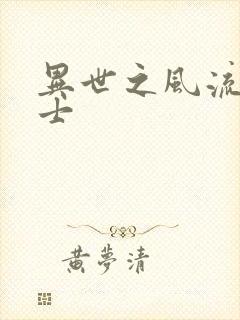 異世之風流
士
黃夢清